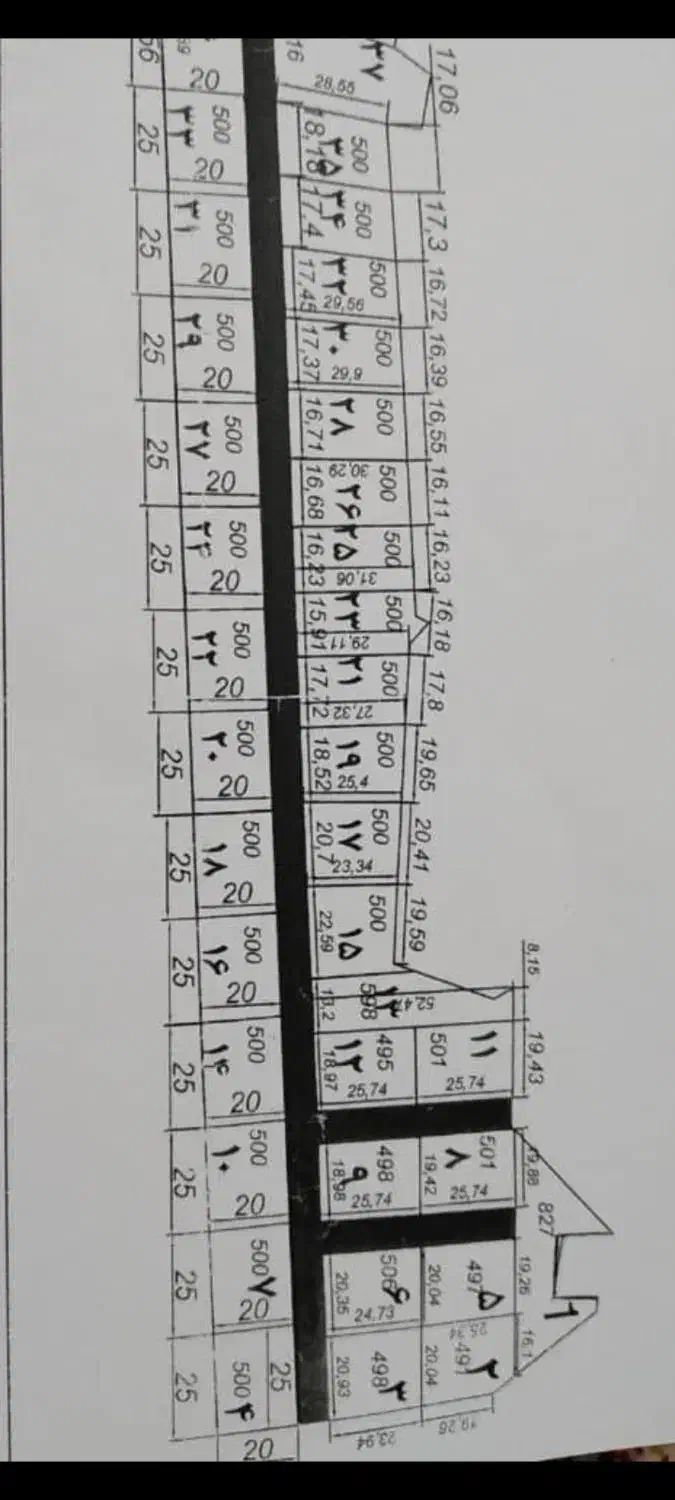 66 20 16 ۳۷ 28,55 17,06
25 ۳۳ 500 20 18,18 ۳۵ 500
25 ۳۱ 500 20 17,4 ۳۴ 500 17,3
25 ۲۹ 500 20 17,45 ۳۲ 29,56 500 16,72
17,37 ۳۰ 29,9 500 16,39
25 ۲۷ 500 20 16,71 ۲۸ 500 16,55
16,68 30,29 ۲۶ 500 16,11
25 ۲۴ 500 20 16,23 ۲۵ 31,06 500 16,23
25 ۲۲ 500 20 15,91 ۲۳ 29,11 500 16,18
17,72 ۲۱ 27,32 500 17,8
25 ۲۰ 500 20 18,52 ۱۹ 25,4 500 19,65
25 ۱۸ 500 20 20,7 ۱۷ 23,34 500 20,41
25 ۱۶ 500 20 22,59 ۱۵ 500 19,59
13,2 598 ۱۳ 52,47 8,15
25 ۱۴ 500 20 18,97 ۱۲ 495 25,74 501 ۱۱ 25,74 19,43
25 ۱۰ 500 20 18,98 ۹ 498 25,74 19,42 ۸ 501 25,74 19,88
827 ۱
25 500 ۷ 20 20,35 506 ۶ 24,73 20,04 497 ۵ 19,26
25 500 ۴ 25 20,93 498 ۳ 20,04 ۲ 16,1
20 23,94 19,26